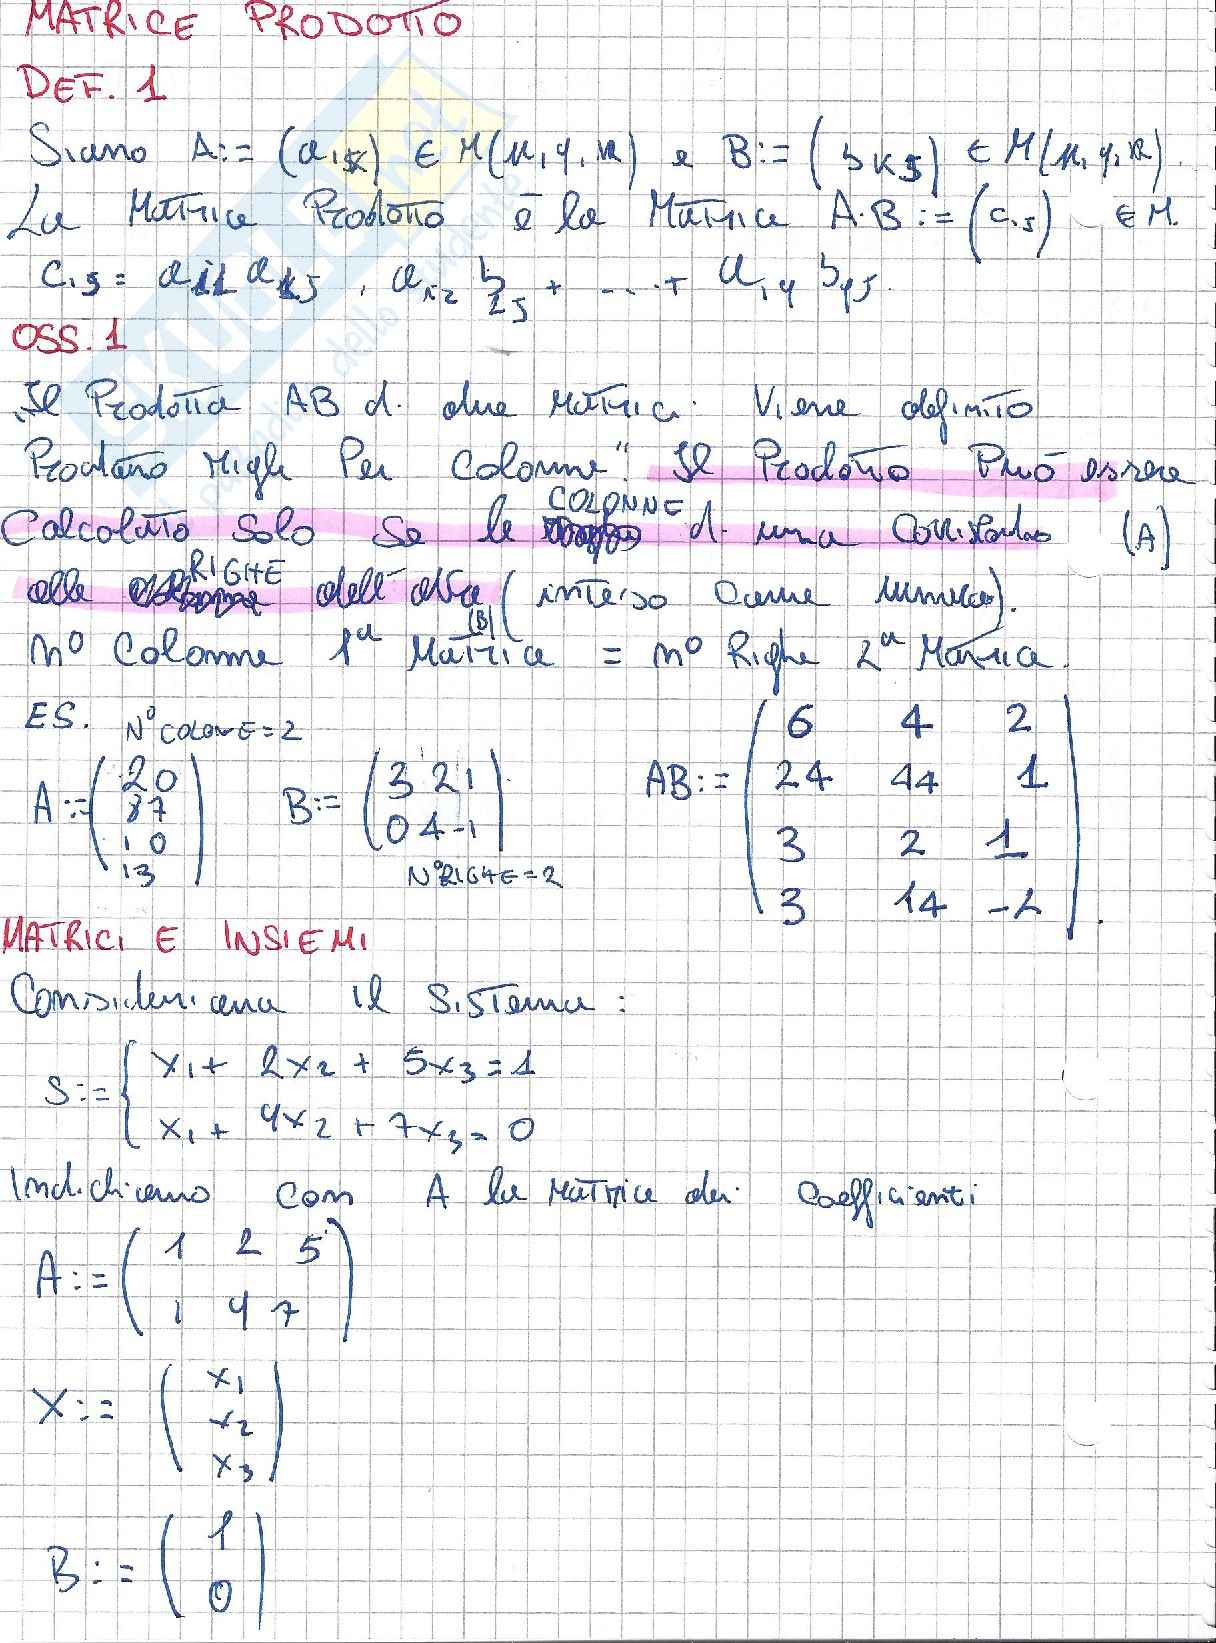 MATRICE PRODOTTO
DEF. 1
Siano A:= (a i,k) ∈ M(n,q,R) e B:= (b k j) ∈ M(n,q,R).
La Matrice Prodotto è la Matrice A·B:= (c i,j) ∈ M.
c i,j = a i1 a 1j , a i2 b 2j + ....+ a i,q b q j.
OSS. 1
"Il Prodotto AB di due Matrici Viene definito
Prodotto righe Per Colonne". Il Prodotto Può essere
Calcolato Solo Se le COLONNE di una (A)
alle RIGHE dell'altra (B) (inteso come numero).
n° Colonne 1ª Matrice = n° Righe 2ª Matrice.
ES. N° COLONNE = 2
A:= (2 0
8 7
1 0
1 3)
B:= (3 2 1
0 4 -1)
N° RIGHE = 2
AB:= (6 4 2
24 44 1
3 2 1
3 14 -2).
MATRICI E INSIEMI
Consideriamo il Sistema:
S:= { x₁ + 2x₂ + 5x₃ = 1
x₁ + 4x₂ + 7x₃ = 0
Indichiamo con A la matrice dei coefficienti
A:= (1 2 5
1 4 7)
X:= (x₁
x₂
x₃)
B:= (1
0)